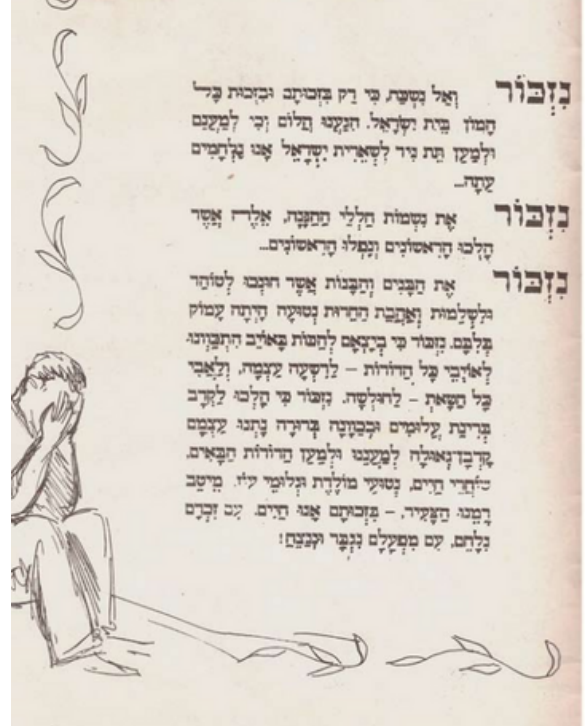 נִזְכּוֹר וְאַל נִשְׁכַּח, כִּי רַק בִּזְכוּתָם וּבִזְכוּת כָּל
הֲמוֹן בֵּית יִשְׂרָאֵל. הִגַּעְנוּ הֲלוֹם וְכִי לְמַעֲנָם
וּלְמַעַן תֵּת נִיד לִשְׁאֵרִית יִשְׂרָאֵל אָנוּ נִלְחָמִים
עַתָּה...
נִזְכּוֹר אֶת נִשְׁמוֹת חַלְלֵי הַהֲגָנָה, אֵלֶּה אֲשֶׁר
הָלְכוּ הָרִאשׁוֹנִים וְנָפְלוּ הָרִאשׁוֹנִים...
נִזְכּוֹר אֶת הַבָּנִים וְהַבָּנוֹת אֲשֶׁר חוּנְכוּ לְטוֹהַר
וְלִשְׁלֵמוּת וְאַהֲבַת הַחֵרוּת נְטוּעָה הָיְתָה עָמוֹק
בְּלִבָּם. נִזְכּוֹר כִּי בְּצֵאתָם לְהַכּוֹת בָּאוֹיֵב הִתְכַּוְּונוּ
לְאוֹיְבֵי כָּל הַדּוֹרוֹת – לָרִשְׁעָה עַצְמָהּ, וְלַאֲבִי
כָּל חַטָּאת – לַחוּלְשָׁה. נִזְכּוֹר כִּי הָלְכוּ לַקְּרָב
בְּרִינַת עֲלוּמִים וּבְכַוָּונָה בְּרוּרָה נָתְנוּ עַצְמָם
קָרְבַּן־גְּאוּלָּה לְמַעֲנֵנוּ וּלְמַעַן הַדּוֹרוֹת הַבָּאִים,
שׁוֹחֲרֵי חַיִּים, נְטוּעֵי מוֹלֶדֶת וּגְלוּמֵי עוֹז. מֵיטַב
דָּמֵנוּ הַצָּעִיר, – בִּזְכוּתָם אָנוּ חַיִּים. עִם זִכְרָם
נִלָּחֵם, עִם מִפְעָלָם נִגְבַּר וּנְנַצֵּחַ!